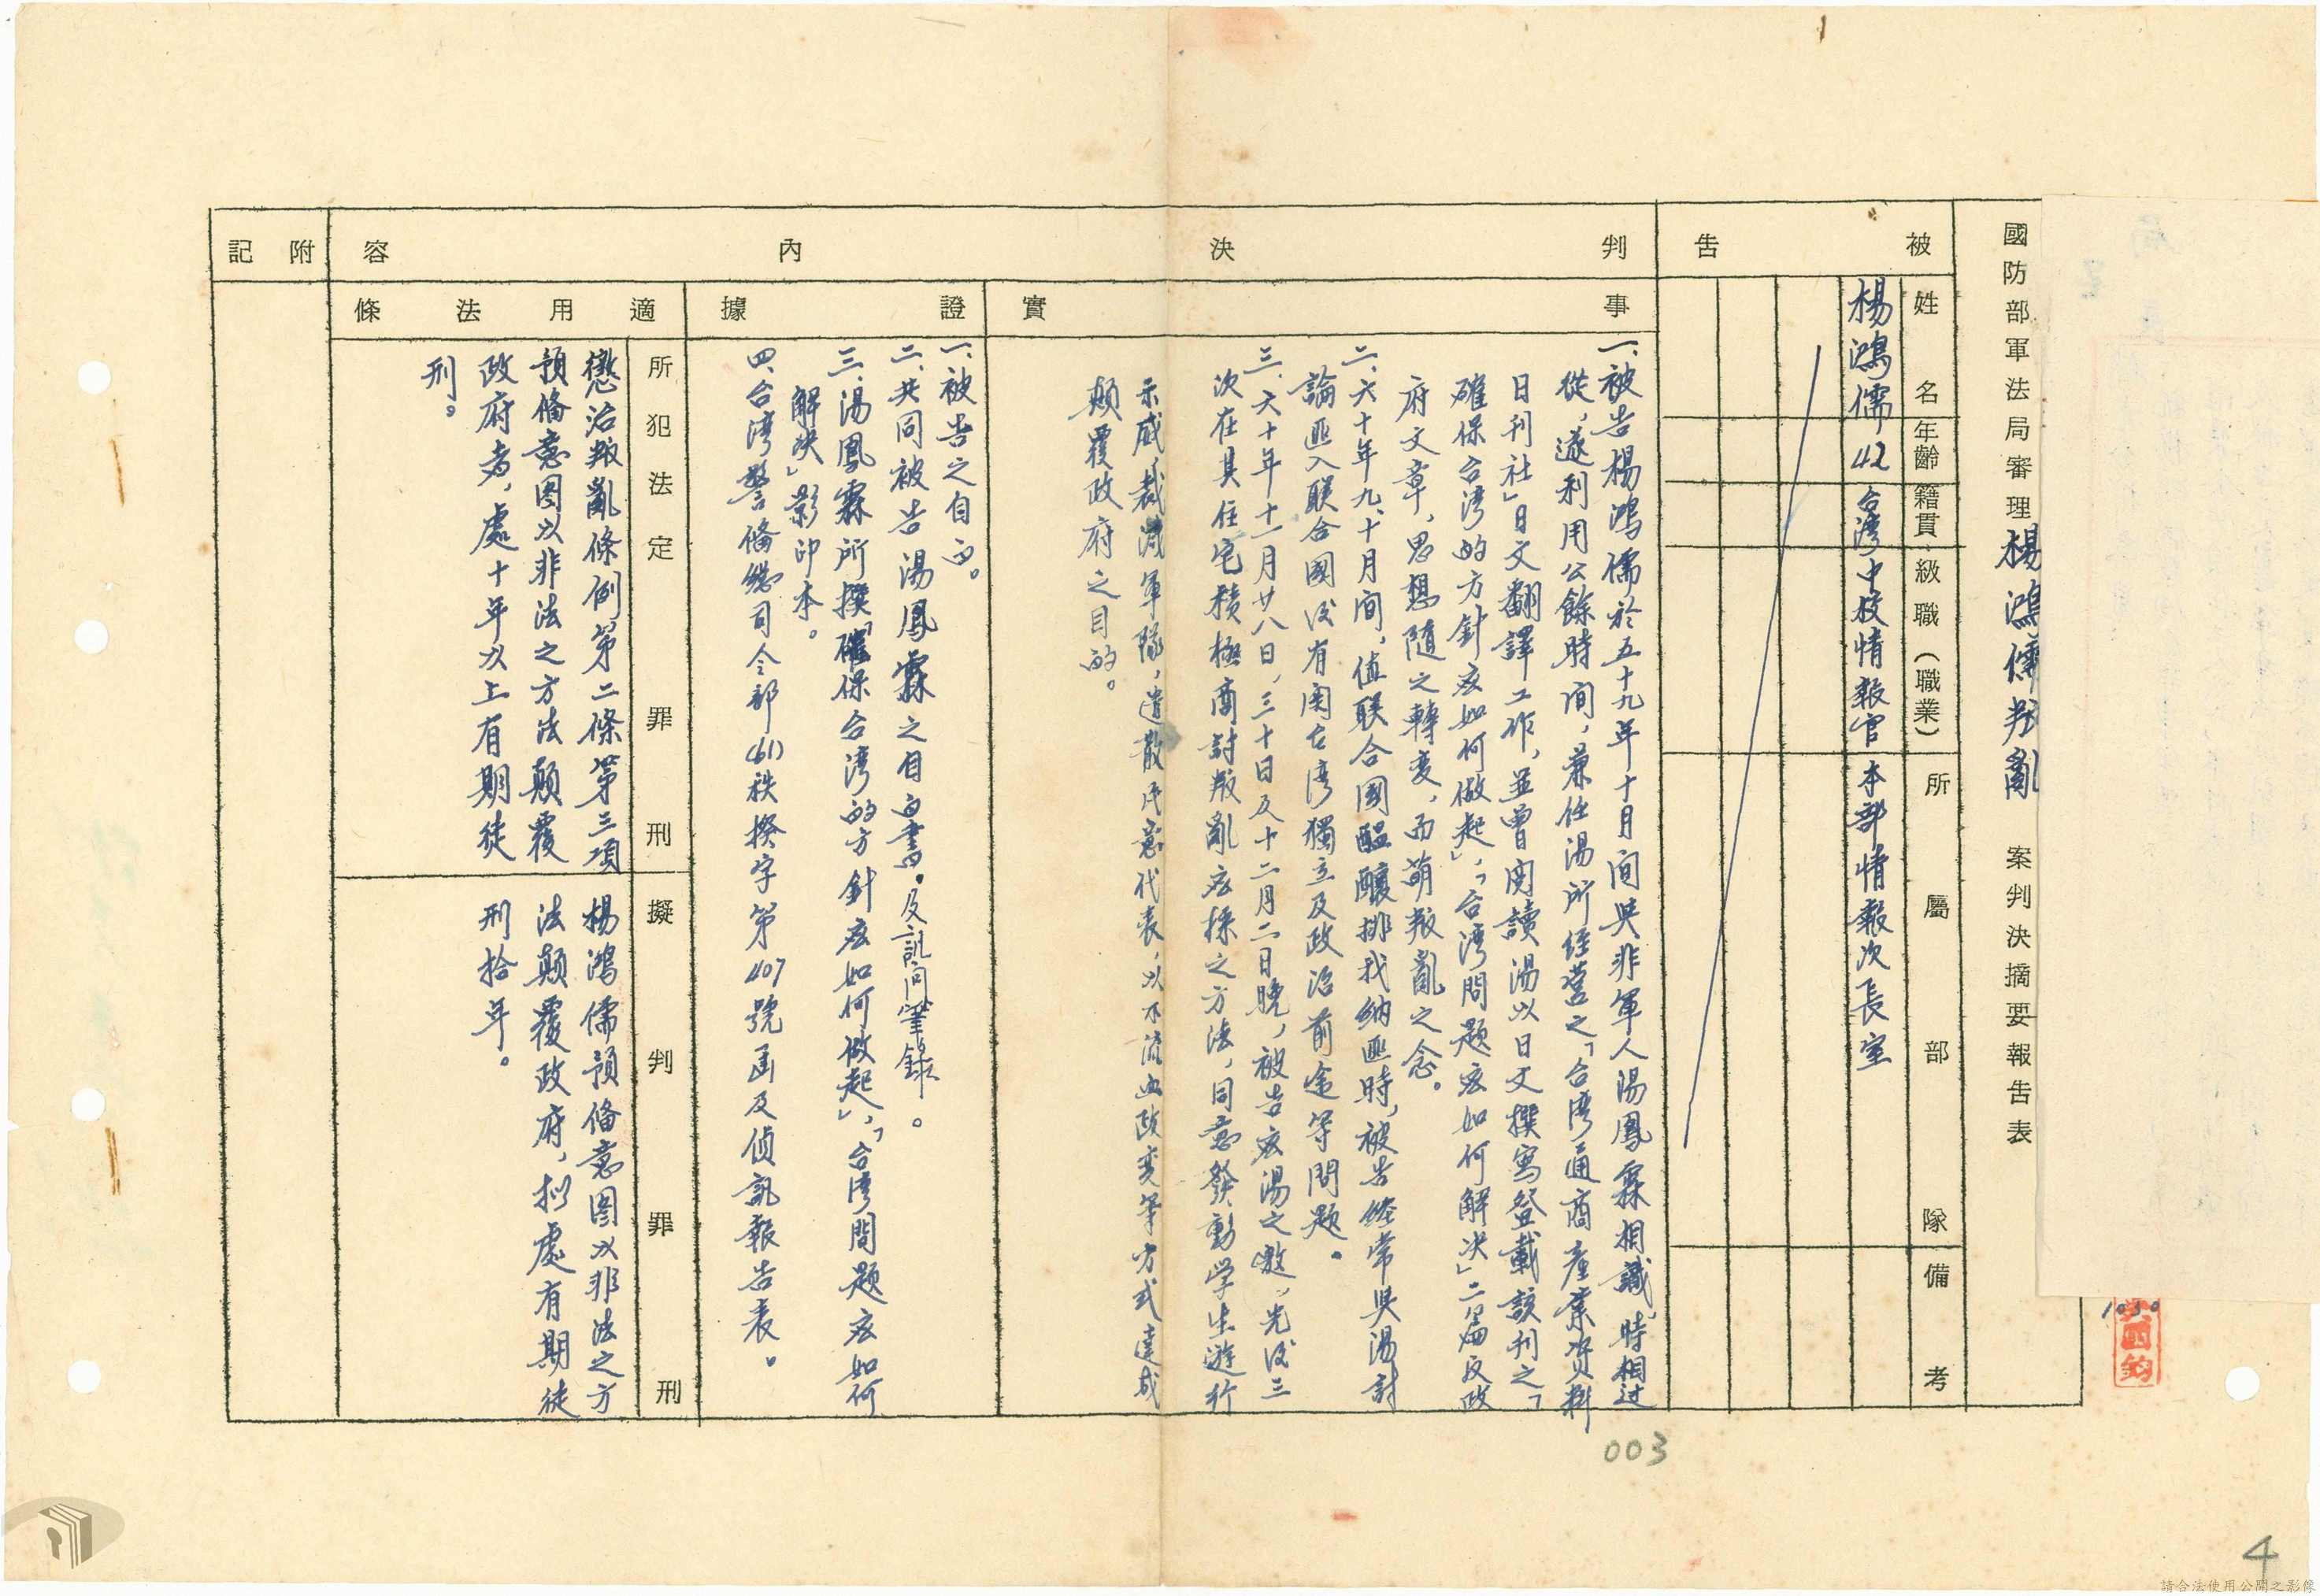 國防部軍法局審理楊鴻儒叛亂案判決摘要報告表
被告
姓名
年齡
籍貫
級職（職業）
所屬部隊
備考
楊鴻儒
42
台湾
中校情報官
本部情報次長室
判決內容
事實
一、被告楊鴻儒於五十九年十月间與非軍人湯鳳霖相識，時相过
從，遂利用公餘時间，兼任湯所經营之「台湾通商產業資料
日刊社」日文翻譯工作，並曾閱讀湯以日文撰寫登載該刊之「
確保台湾的方針应如何做起」，「台湾問題应如何解决」二篇反政
府文章，思想隨之轉变，而萌叛亂之念。
二、六十年九、十月间，值联合國醞釀排我納匪時，被告經常與湯討
論匪入联合國後有関台湾獨立及政治前途等問题。
三、六十年十一月廿八日，三十日及十二月二日晚，被告应湯之邀，先後三
次在其住宅積極商討叛亂应採之方法，同意發動学生遊行
示威，裁减軍隊，遣散民意代表，以不流血政变等方式達成
顛覆政府之目的。
證據
一、被告之自白。
二、共同被告湯鳳霖之自白書。及訊问筆錄。
三、湯鳳霖所撰「確保台湾的方針应如何做起」，「台湾問题应如何
解决」影印本。
四、台湾警備總司令部(61)秩揆字第407號函及偵訊報告表。
適用法條
所犯法定罪刑
懲治叛亂條例第二條第三項
預備意图以非法之方法顛覆
政府者，處十年以上有期徒
刑。
擬判罪刑
楊鴻儒預備意图以非法之方
法顛覆政府，拟處有期徒
刑拾年。
附記
1030
003
4
請合法使用公開之影像